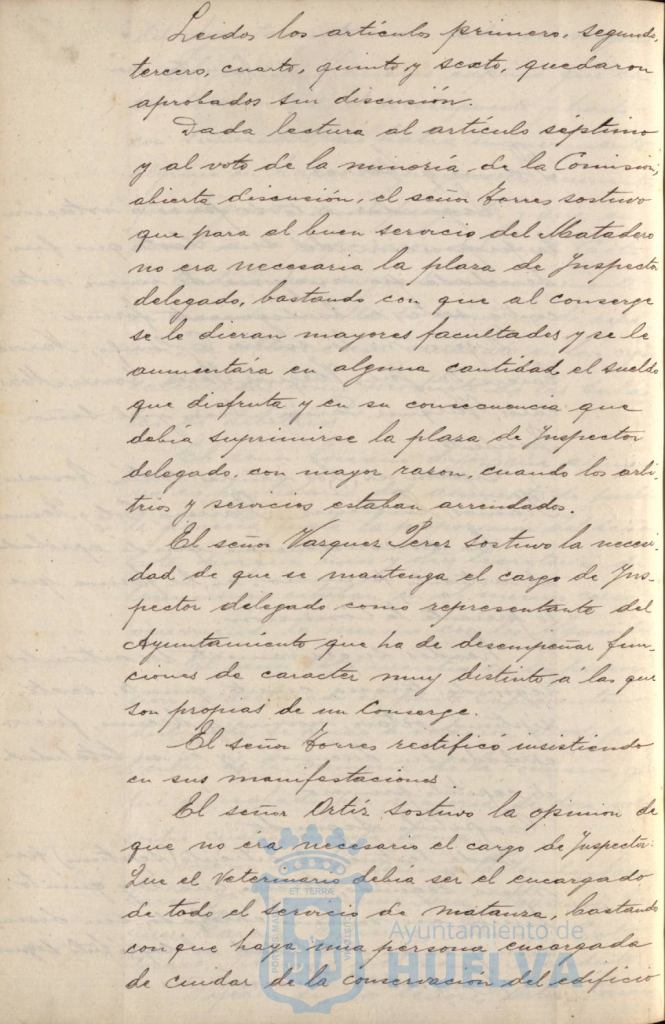 Leidos los artículos primero, segundo,
tercero, cuarto, quinto y sexto, quedaron
aprobados sin discusión.
Dada lectura al artículo séptimo
y al voto de la minoría de la Comisión,
abierta discusión, el señor Torres sostuvo
que para el buen servicio del Matadero
no era necesaria la plaza de Inspector
delegado, bastando con que al conserge
se le dieran mayores facultades y se le
aumentára en alguna cantidad el sueldo
que disfruta y en su consecuencia que
debía suprimirse la plaza de Inspector
delegado, con mayor rason, cuando los arbi-
trios y servicios estaban arrendados.
El señor Vazquez Perez sostuvo la necesi-
dad de que se mantenga el cargo de Ins-
pector delegado como representante del
Ayuntamiento que ha de desempeñar fun-
ciones de caracter muy distinto á las que
son propias de un Conserge.
El señor Torres rectificó insistiendo
en sus manifestaciones.
El señor Ortíz sostuvo la opinion de
que no éra necesario el cargo de Inspector:
Que el Veterinario debía ser el encargado
de todo el servicio de matanza, bastando
con que haya una persona encargada
de cuidar de la conservación del edificio
ET TERRÆ
Ayuntamiento de
HUELVA